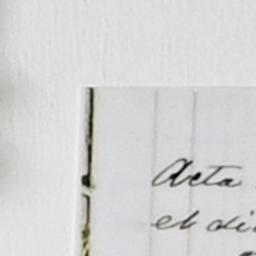 Acta
el di